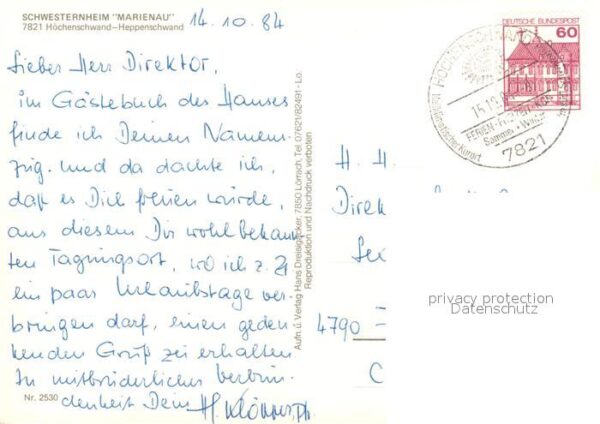 SCHWESTERNHEIM "MARIENAU"
7821 Höchenschwand—Heppenschwand
14.10.84
Lieber Herr Direktor,
im Gästebuch des Hauses
finde ich Deinen Namens-
zug. und da dachte ich,
daß es Dich freuen würde,
aus diesem Dir wohlbekann-
ten Tagungsort, wo ich z. Zt
ein paar Urlaubstage ver-
bringen darf, einen geden-
kenden Gruß zu erhalten
In mitbrüderlicher Verbun-
denheit Dein
Nr. 2530
Aufn. u. Verlag Hans Dreisigacker, 7850 Lörrach, Tel. 07621/82491 - Lo.
Reproduktion und Nachdruck verboten
DEUTSCHE BUNDESPOST
60
HÖCHENSCHWAND
15.10.
FERIEN-
Sommer + Winter
heilklimatischer Kurort
7821
H. H.
Direk
4790
privacy protection
Datenschutz